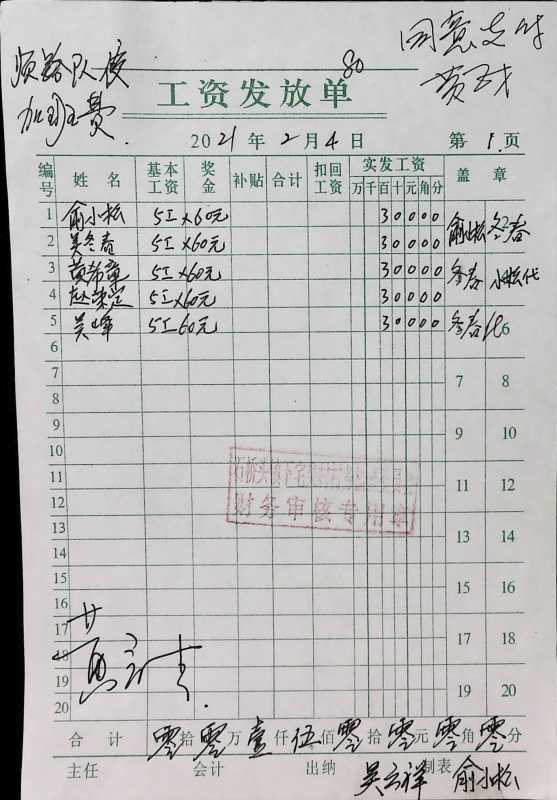 同意支付
80
加班费
工资发放单
2021年2月4日 第1页
编号 姓名 基本工资 奖金 补贴 合计 扣回工资 实发工资 盖章
万 千 百 十 元 角 分
1 俞小松 5工×60元 30000 俞小松 冬春
2 吴冬春 5工×60元 30000
3 黄希童 5工×60元 30000 冬春 小松代
4 5工×60元 30000
5 吴峰 5工60元 30000 冬春代 6
6
7 7 8
8
9 9 10
10
11 11 12
12
13 13 14
14
15 15 16
16
17 17 18
18
19 19 20
20
财务审核专用章
合计 零拾零万壹仟伍佰零拾零元零角零分
主任 会计 出纳 制表
吴云祥 俞小松